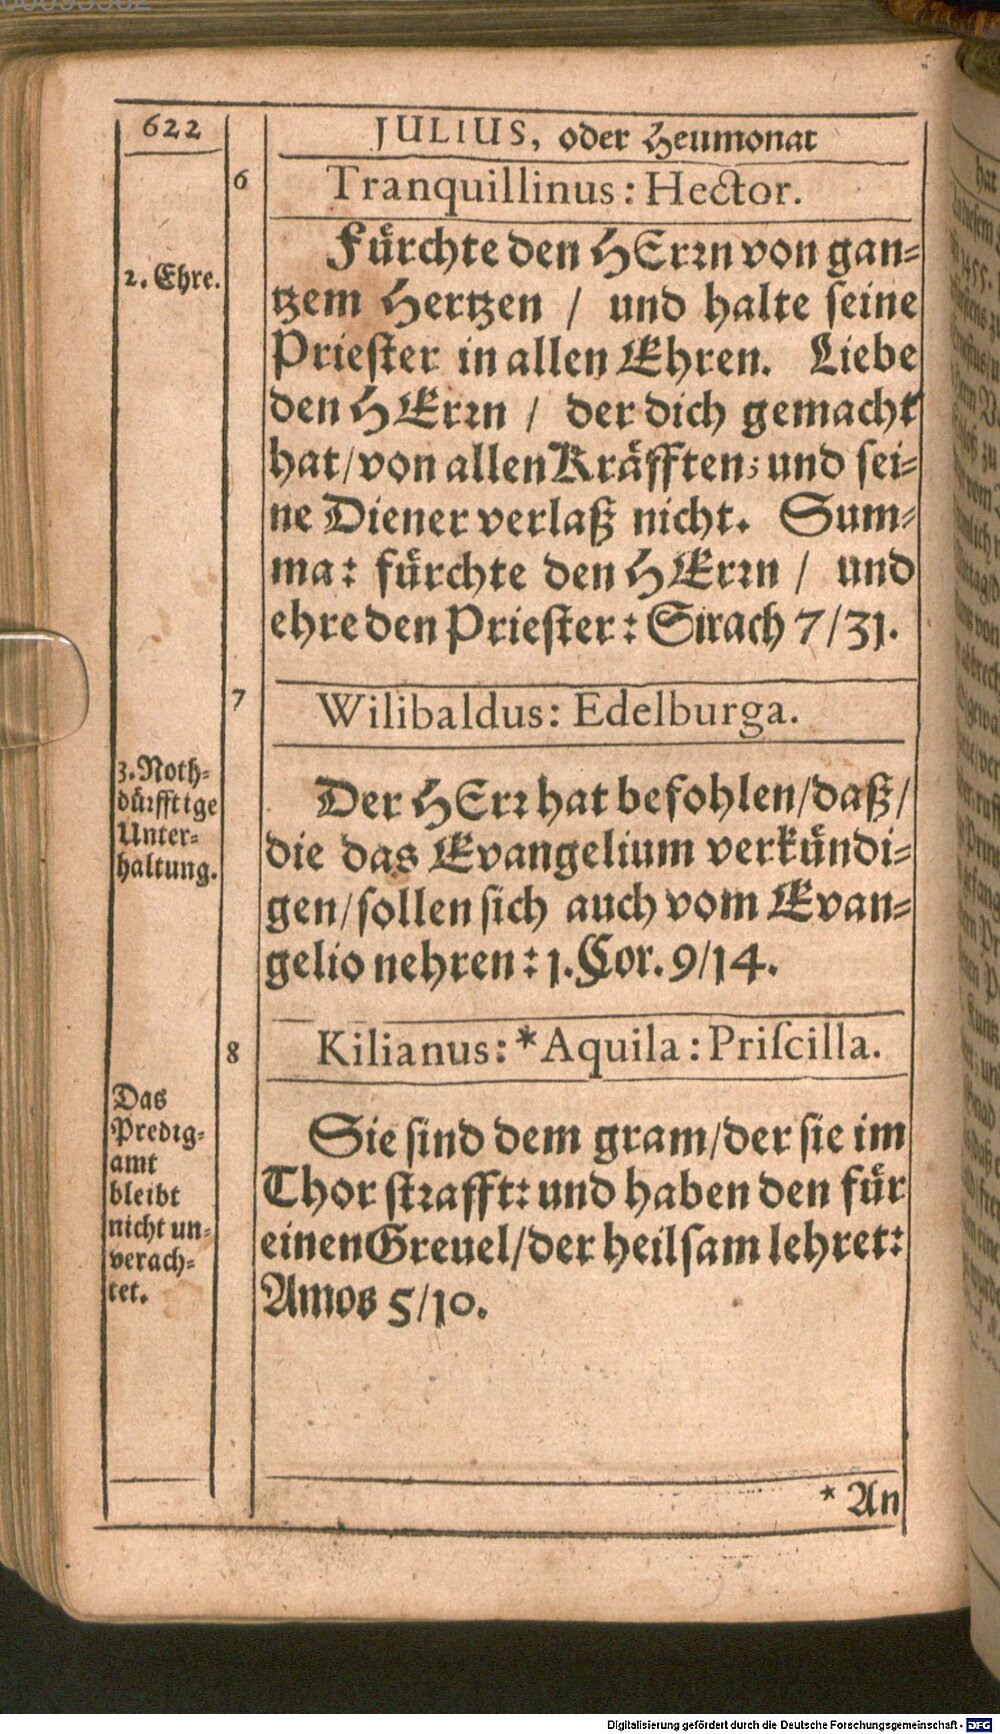 622
JULIUS, oder Heumonat
6
Tranquillinus: Hector.
2. Ehre.
Fürchte den HErrn von gan-
tzem Hertzen / und halte seine
Priester in allen Ehren. Liebe
den HErrn / der dich gemacht
hat/von allen Kräfften; und sei-
ne Diener verlaß nicht. Sum-
ma: fürchte den HErrn / und
ehre den Priester: Sirach 7/31.
7
Wilibaldus: Edelburga.
3. Noth-
dürfftige
Unter-
haltung.
Der HErr hat befohlen/daß/
die das Evangelium verkündi-
gen/sollen sich auch vom Evan-
gelio nehren: 1. Cor. 9/14.
8
Kilianus: *Aquila: Priſcilla.
Das
Predig-
amt
bleibt
nicht un-
verach-
tet.
Sie sind dem gram/der sie im
Thor strafft: und haben den für
einen Greuel/der heilsam lehret:
Amos 5/10.
* An
Digitalisierung gefördert durch die Deutsche Forschungsgemeinschaft - DFG